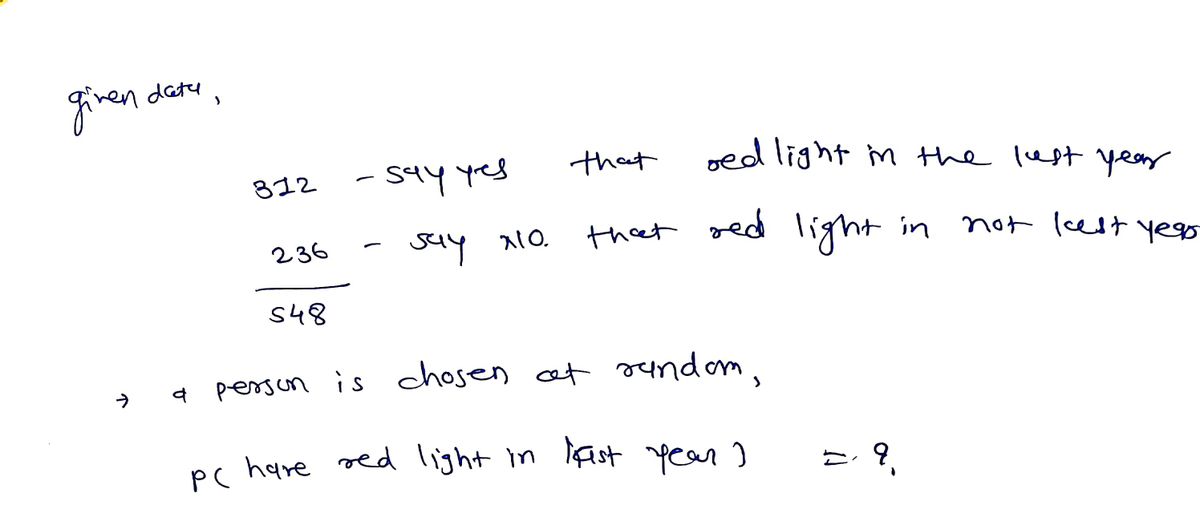 given data,
312 - say yes that red light in the last year
236 - say NO. that red light in not last year
548
→ a person is chosen at random,
P( have red light in last year ) = ?